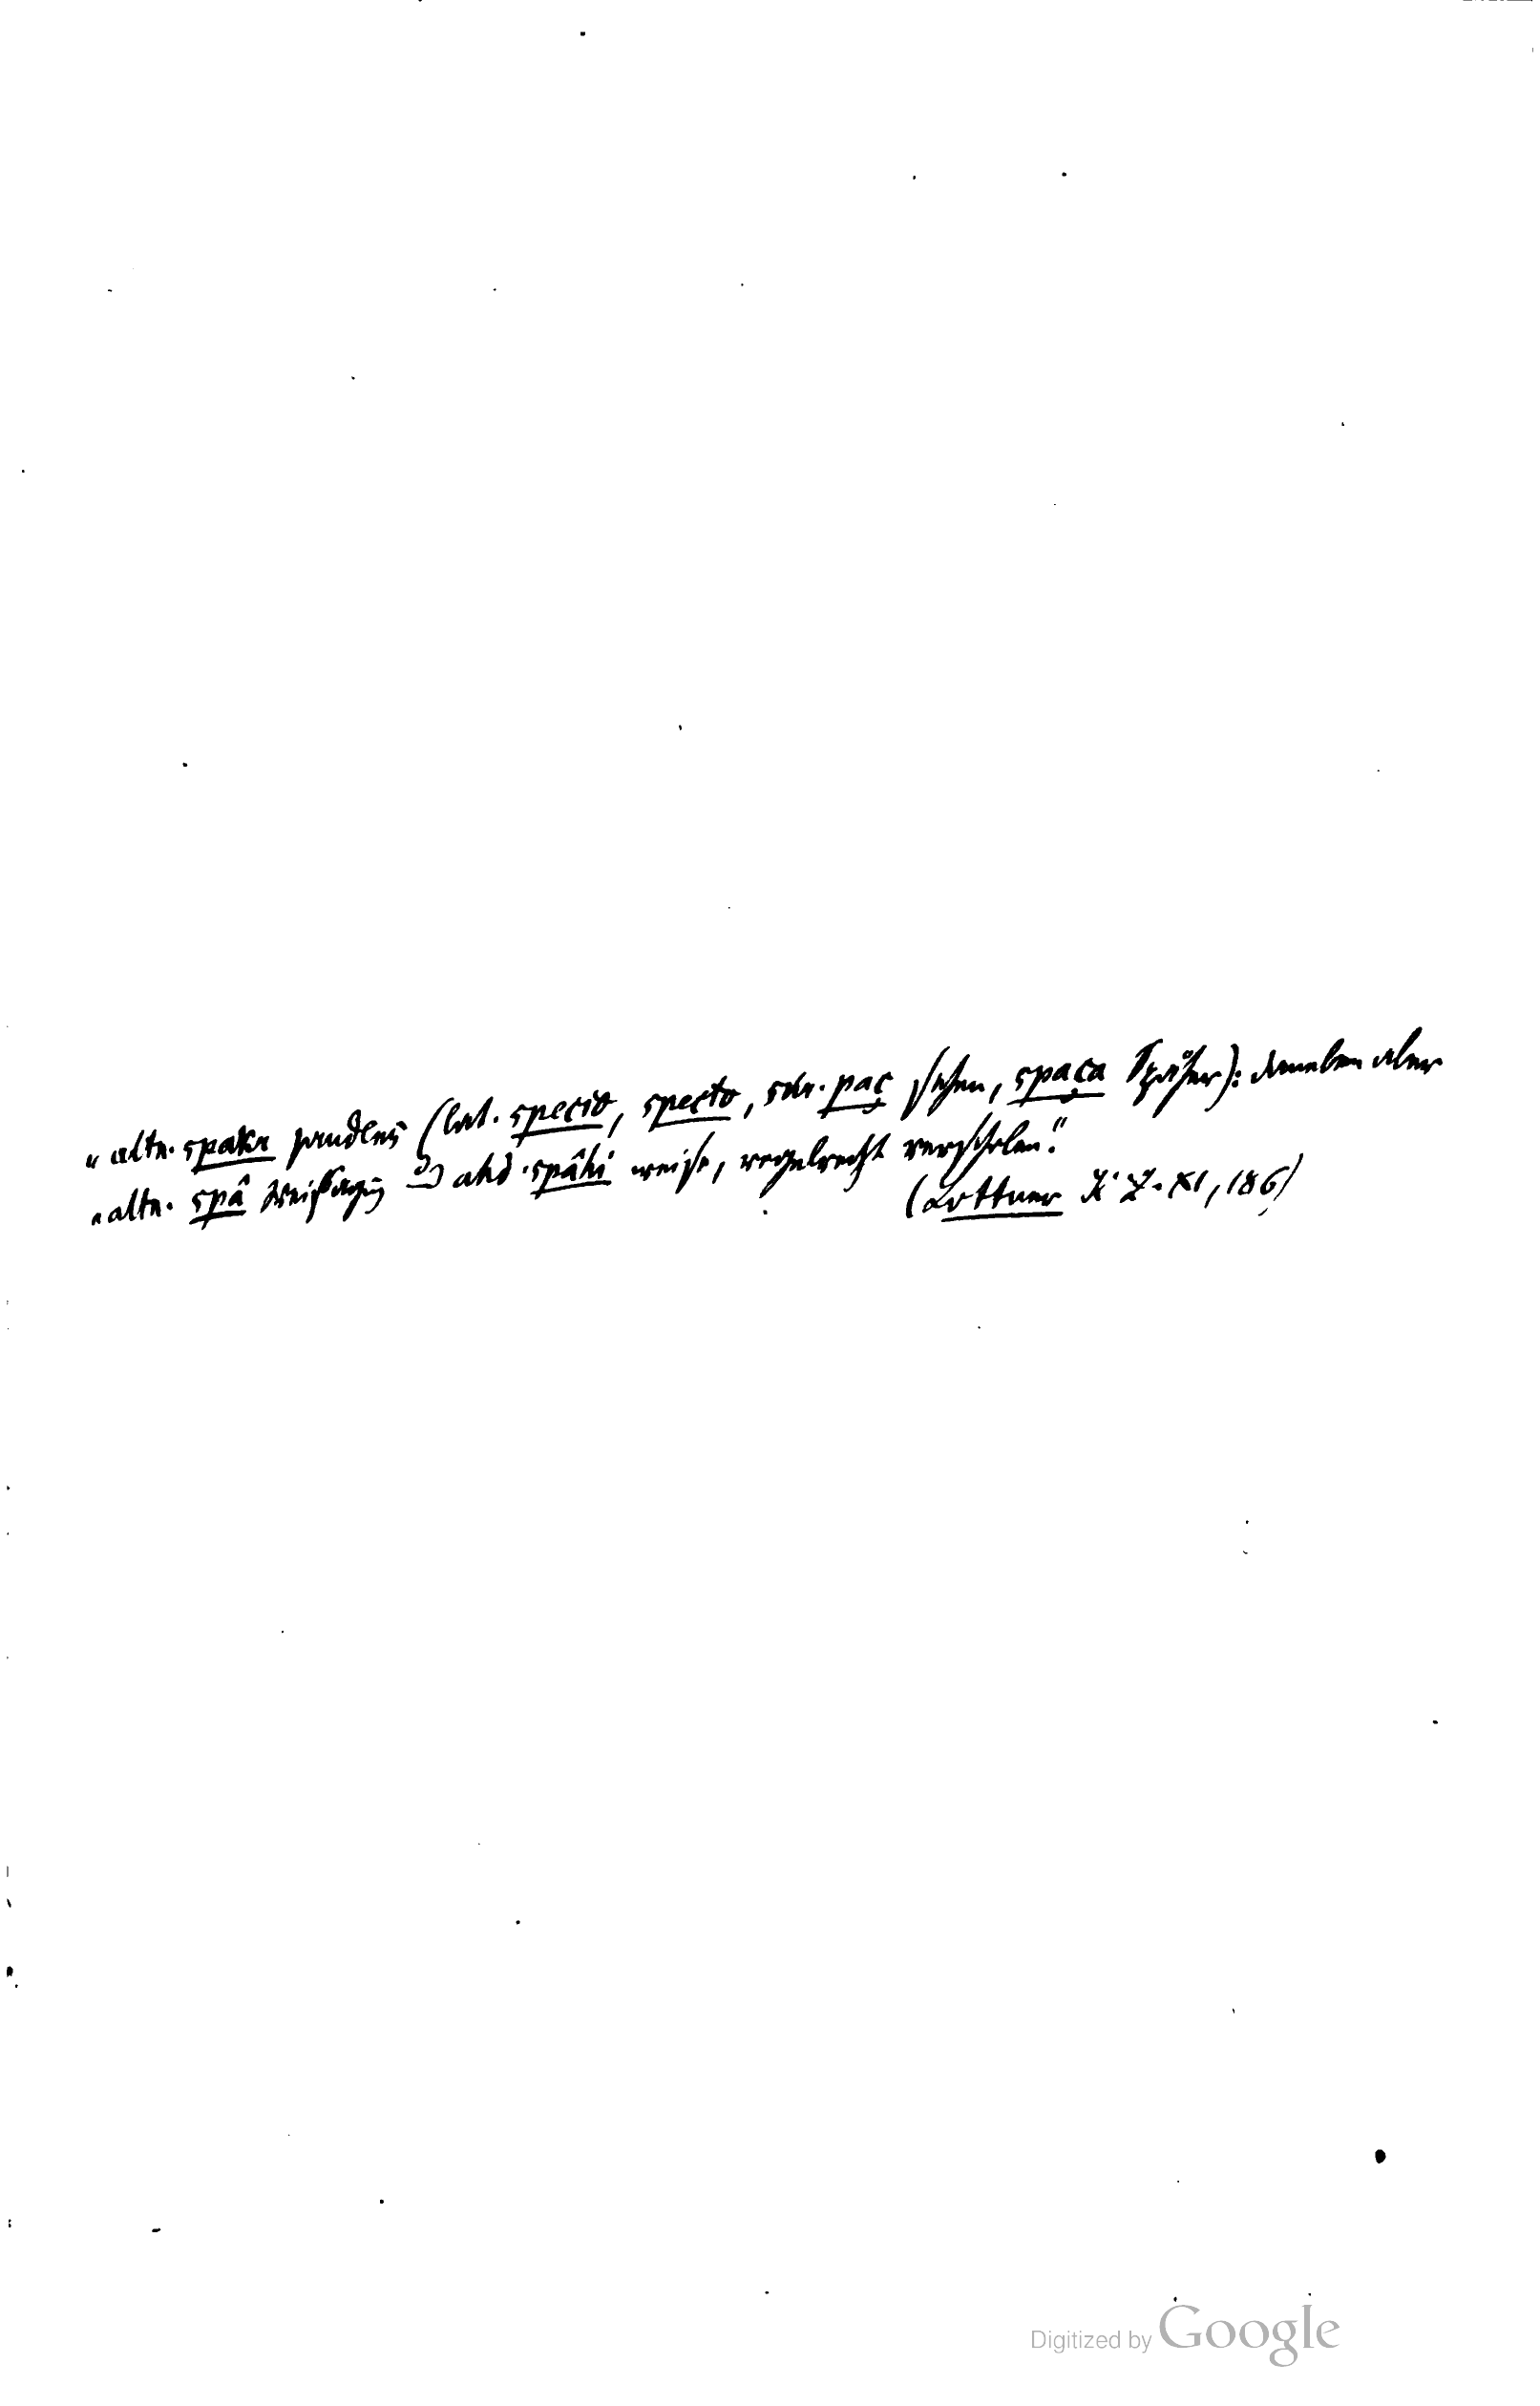 „altn. spakr prudens (lat. specio, specto, skr. paç sehen, spaça Späher): daneben aber
„altn. spâ Weißagung ahd. spâhi weise, regelrecht verschoben.“
(Lottner K. Z. XI, 186)
Digitized by Google